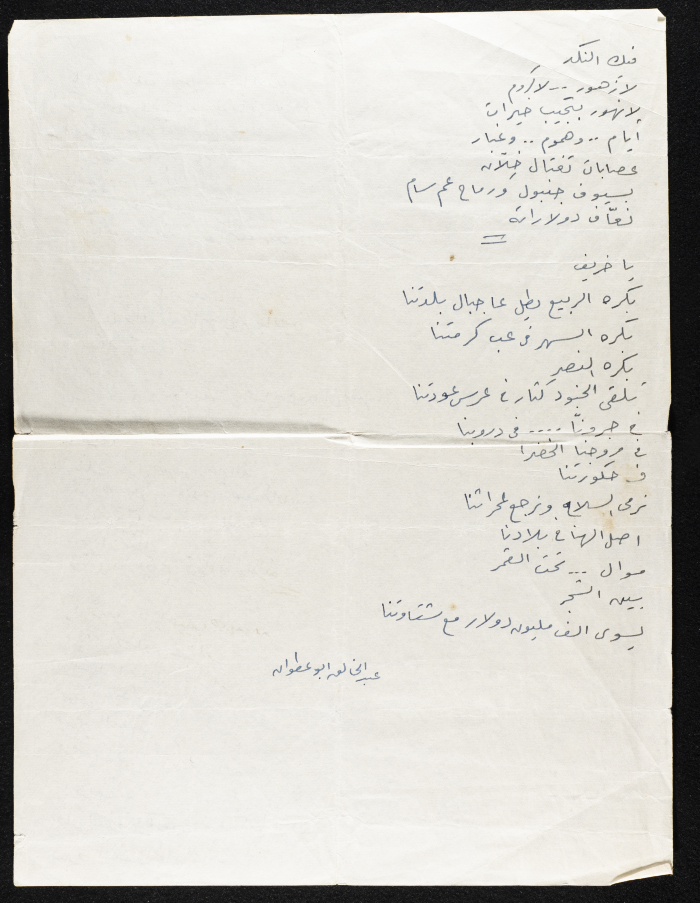 فيك النكد
لا زهور .. لا كروم
لا نهور بتجيب خيرات
أيام .. وهموم .. وغبار
عصابات تغتال خلّانه
بسيوف جنبول ورماح عم سام
نغّاف دولاراته
يا خريف
بكره الربيع يطل عا جبال بلدتنا
بكره السهر في عب كرمتنا
بكره النصر
تلقى الجنود كتار في عرس عودتنا
في جرونّا .... في دروبنا
في مروجنا الخضرا
في حكورتنا
نرمي السلاح ونرجع لمحراثنا
اصل الهنا في بلادنا
موال ... تحت القمر
بين الشجر
يسوى الف مليون دولار مع شقاوتنا
عبد الخالق ابو عطوان